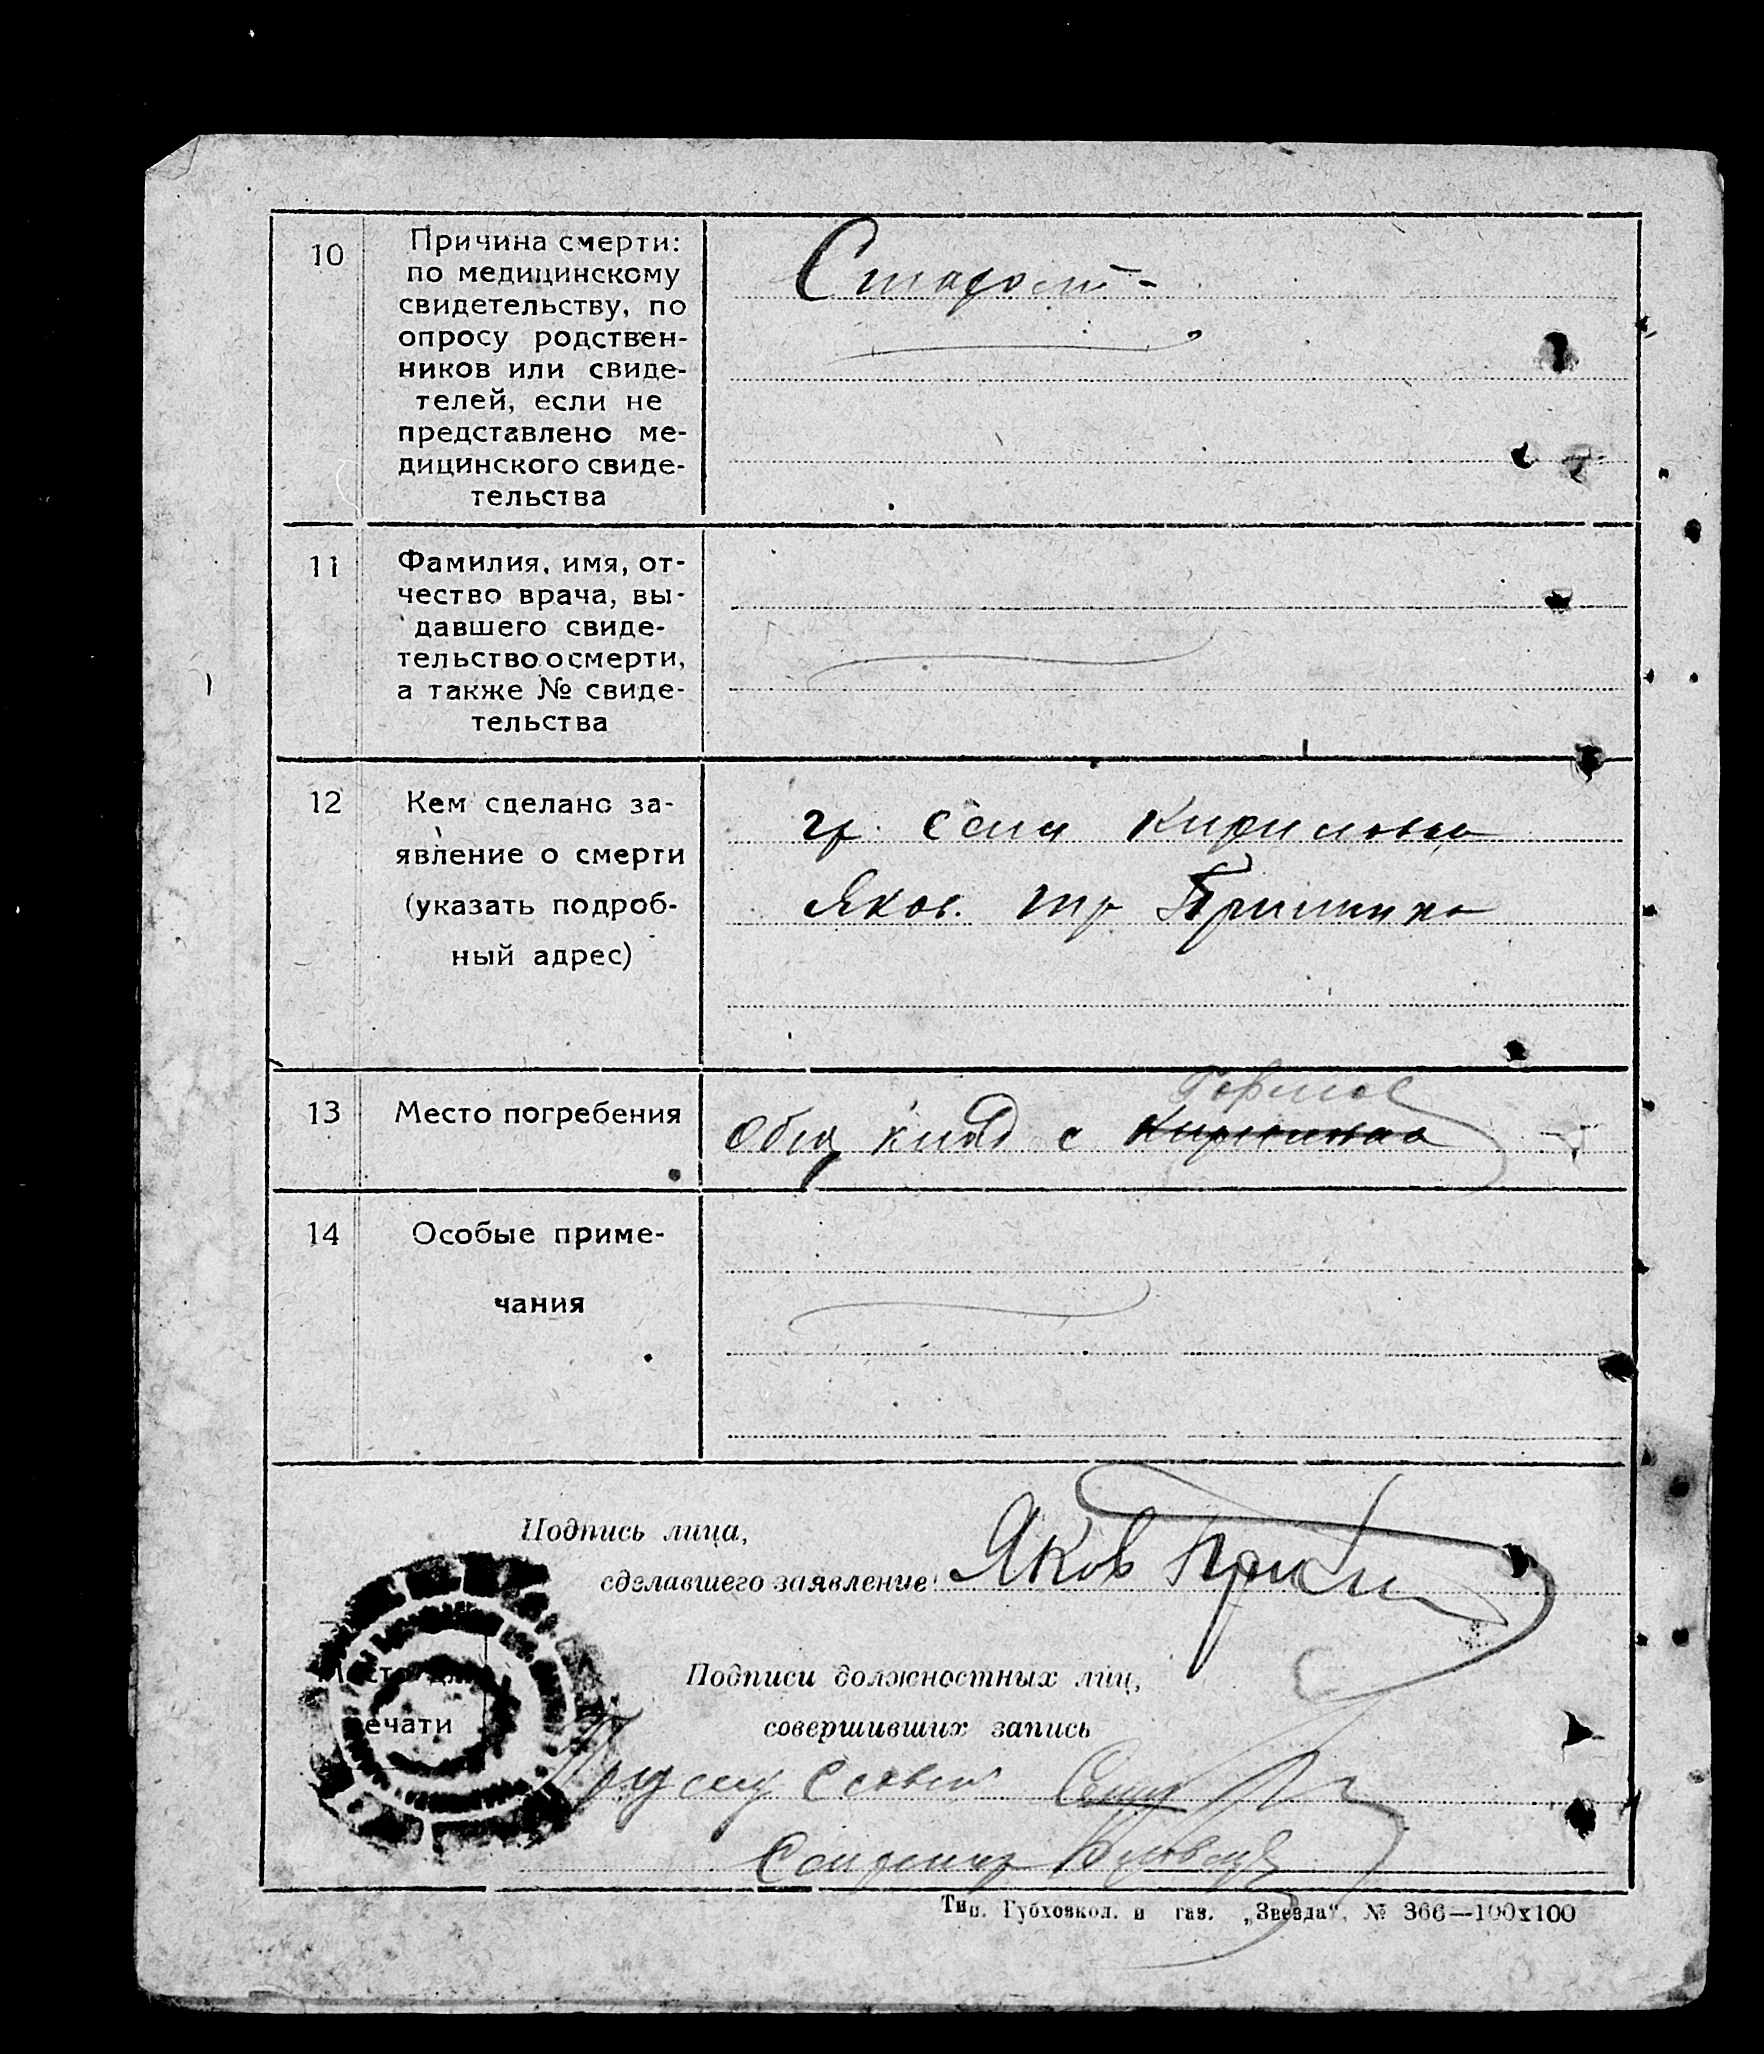 10
Причина смерти:
по медицинскому
свидетельству, по
опросу родствен-
ников или свиде-
телей, если не
представлено ме-
дицинского свиде-
тельства
Старость
11
Фамилия, имя, от-
чество врача, вы-
давшего свиде-
тельство о смерти,
а также № свиде-
тельства
12
Кем сделано за-
явление о смерти
(указать подроб-
ный адрес)
гр. села Кириловка
Яков.
13
Место погребения
Общ клад с Кириловка
14
Особые приме-
чания
Подпись лица,
сделавшего заявление
Яков
Подписи должностных лиц,
совершивших запись
ечати
Тип. Губховкол. и газ. „Звезда“, № 366—100х100